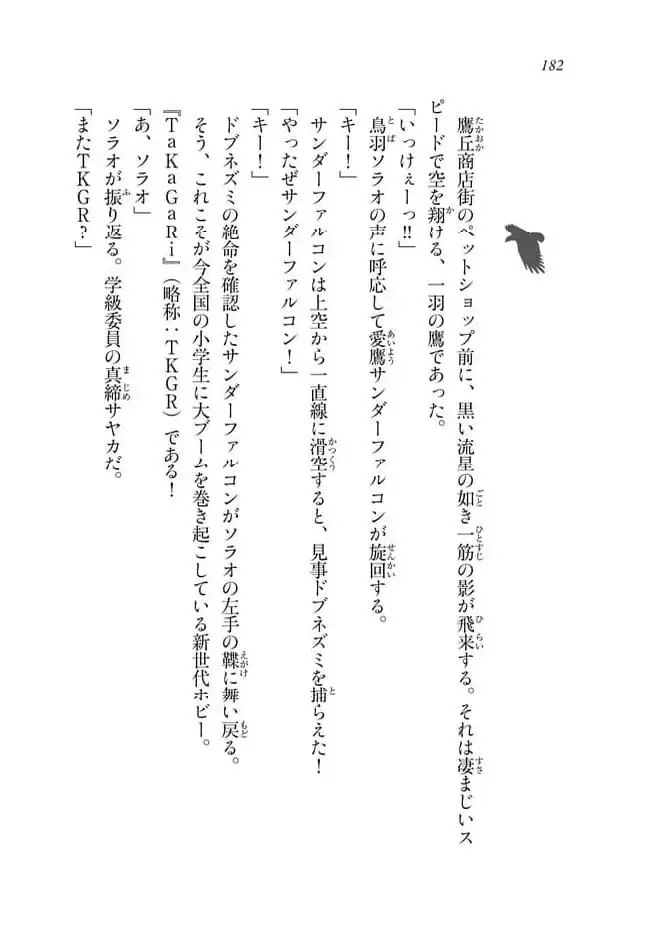 182
鷹丘商店街のペットショップ前に、黒い流星の如き一筋の影が飛来する。それは凄まじいス
ピードで空を翔ける、一羽の鷹であった。
「いっけぇーっ!!」
鳥羽ソラオの声に呼応して愛鷹サンダーファルコンが旋回する。
「キー！」
サンダーファルコンは上空から一直線に滑空すると、見事ドブネズミを捕らえた！
「やったぜサンダーファルコン！」
「キー！」
ドブネズミの絶命を確認したサンダーファルコンがソラオの左手の鞢に舞い戻る。
そう、これこそが今全国の小学生に大ブームを巻き起こしている新世代ホビー。
『TaKaGaRi』（略称：TKGR）である！
「あ、ソラオ」
ソラオが振り返る。学級委員の真締サヤカだ。
「またTKGR？」